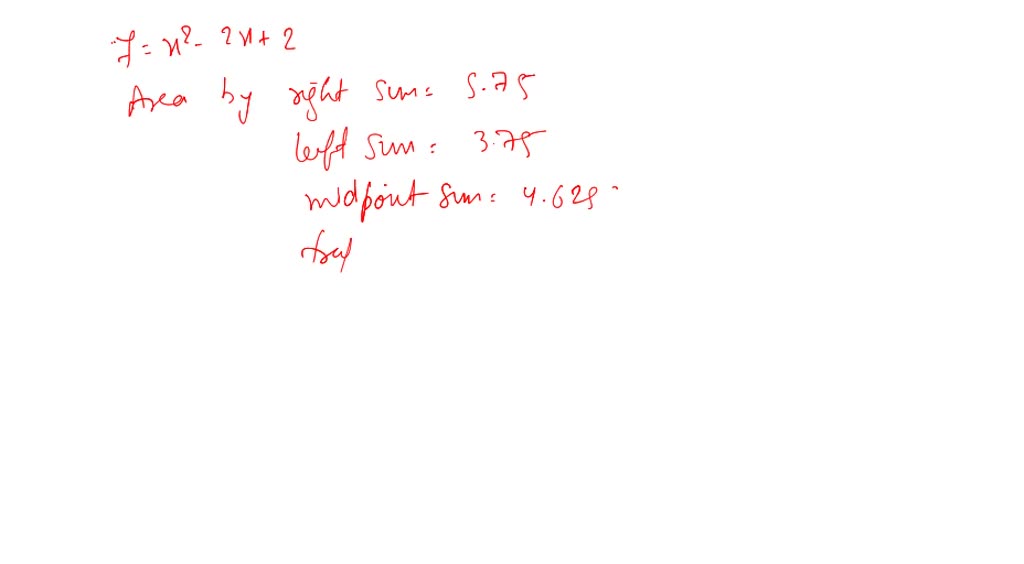 y = x² - 2x + 2
Area by right sum = 5.75
left sum = 3.75
midpoint sum = 4.625
trap